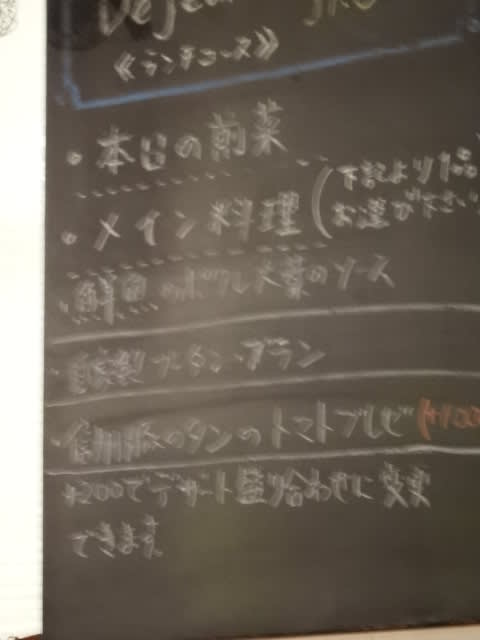 《ランチコース》
・本日の前菜
・メイン料理(下記より1品
お選び下さい
・鮮魚のポワレ 大葉のソース
・自家製ブータン・ブラン
・信州豚のタンのトマトブレゼ
+200でデザート盛り合わせに変更
できます